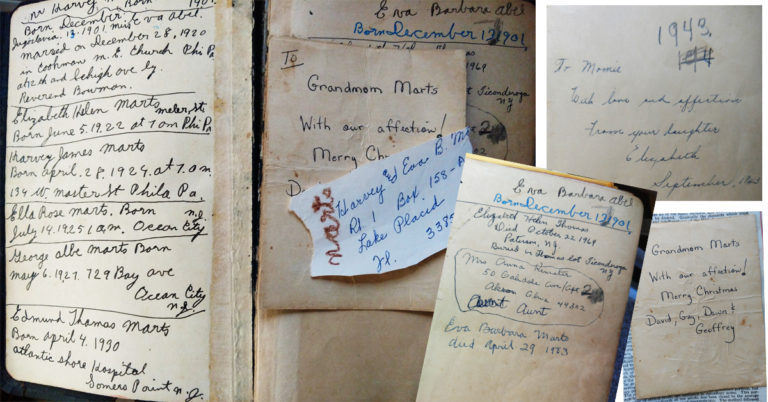 Mr Harvey
Born December 1901
Jugoslavia. 13. 1901, miss Eva Abel.
married on December 28, 1920
in Cookman M.E. Church Phi Pa
at 12th and Lehigh ove by
Reverend Bowman.
Elizabeth Helen Marts
meler, St
Born June 5. 1922 at 7 am Phi Pa
Harvey James Marts
Born april. 28, 1924. at 7. a.m.
134 W. master St Phila Pa.
Ella Rose marts. Born
July 14. 1925 1 a.m. Ocean City
n.J.
George albe marts Born
may 6. 1927. 729 Bay ave
Ocean City
n.J.
Edmund Thomas Marts
Born april 4. 1930
atlantic shore Hospital
Somers Point n.J.
Eva Barbara Abel
Born December 12, 1901,
1969
Ticonderoga
N.Y
To
Grandmom Marts
With our affection!
Merry Chr
D
marts
Harvey & Eva B. M
Rt. 1 Box 158-
Lake Placid
Fl. 338
Eva Barbara Abel
Born December 12, 1901,
Elizabeth Helen Thomas
Died October 22 1969
Paterson, N.J.
Buried in Thomas lot Ticonderoga
N.Y
Mrs Anna
50
Akron Ohio 44302
Aunt
Eva Barbara Marts
died April 29 1983
1943
To Momie
With love and affection
From your daughter
Elizabeth
September,
Grandmom Marts
With our affection!
Merry Christmas
David, Gay, Dawn &
Geoffrey